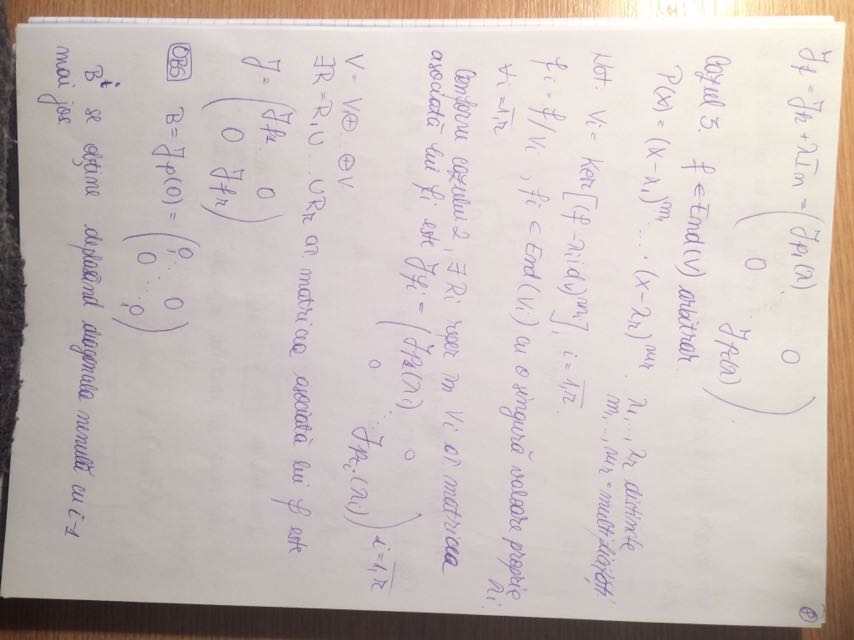 J_f = J_h + λI_m = (J_{p1}(λ) 0
0 J_{p(λ)})
Cazul 3. f ∈ End(V) arbitrar
P(x) = (x-λ_1)^{m_1} ... (x-λ_r)^{m_r} λ_1,...,λ_r distincte
m_1,...,m_r = multiplicități
Not. V_i = Ker[(f-λ_i id_V)^{m_i}], i=\overline{1,r}
f_i = f/V_i , f_i ∈ End(V_i) cu o singură valoare proprie λ_i
∀i=\overline{1,r}
Conform cazului 2, ∃ R_i reper în V_i aî matricea
asociată lui f_i este J_{f_i} = (J_{p_1}(λ_i) 0
0 J_{p_i}(λ_i)) i=\overline{1,r}
V = V_1⊕ ⊕V
∃R = R_1∪ ... ∪R_r aî matricea asociată lui f este
J = (J_{f_1} 0
0 J_{f_r})
OBS B = J_p(0) = (0 0
0 0)
B^i se obține deplasând diagonala nenulă cu i-1
mai jos